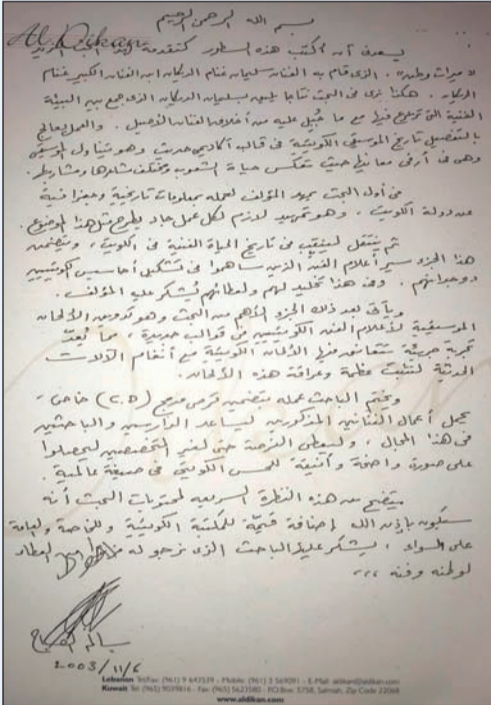 بسم الله الرحمن الرحيم
Al Dikan
يسعدني أن أكتب هذه السطور كمقدمة لهذا البحث
" ميراث وطن " . الذي قام به الفنان سليمان غنام الديكان ابن الفنان الكبير غنام
الديكان . هكذا نرى في البحث نتاجا يليق بسليمان الديكان الذي جمع بين البيئة
الفنية التي ترعرع فيها مع ما جُبل عليه من أخلاق الفنان الأصيل . والعمل يعالج
بالتفصيل تاريخ الموسيقى الكويتية في قالب أكاديمي حديث وهو يتناول الموسيقى
وهي في أرقى معانيها حيث تعكس حياة الشعوب ومختلف مشاعرها ومشاربها .
في أول البحث يمهد المؤلف لعمله بمعلومات تاريخية وجغرافية
عن دولة الكويت ، وهو تمهيد لازم لكل عمل جاد يطرح مثل هذا الموضوع .
ثم ينتقل لينقب في تاريخ الحياة الفنية في الكويت ، ويتضمن
هذا الجزء سير أعلام الفن الذين ساهموا في تشكيل أحاسيس الكويتيين
ووجدانهم . وفي هذا تخليد لهم ولعطائهم يُشكر عليه المؤلف .
ويأتي بعد ذلك الجزء الأهم من البحث وهو تدوين الألحان
الموسيقية لأعلام الفن الكويتيين في قوالب جديدة ، مما يُعدّ
تجربة جريئة تتعانق فيها الألحان الكويتية مع أنغام الآلات
الحديثة لتثبت عظمة وعراقة هذه الألحان .
ويختم الباحث عمله بتضمين قرص مدمج (C.D) خاص ،
يحمل أعمال الفنانين المذكورين ليساعد الدارسين والباحثين
في هذا المجال ، وليعطي الفرصة حتى لغير المتخصصين ليحصلوا
على صورة واضحة وأنيقة للحس الكويتي في صيغة عالمية .
يتضح من هذه النظرة السريعة لمحتويات البحث أنه
سيكون بإذن الله إضافة قيّمة للمكتبة الكويتية وللخاصة والعامة
على السواء ، يُشكر عليها الباحث الذي نرجو له مزيدا من العطاء
لوطنه وفنه ،،،
2003/11/6
Lebanon Tel/Fax: (961) 9 643539 - Mobile: (961) 3 569091 - E-Mail: aldikan@aldikan.com
Kuwait Tel: (965) 9039816 - Fax: (965) 5623580 - P.O.Box: 5758, Salmiah, Zip Code 22068
www.aldikan.com